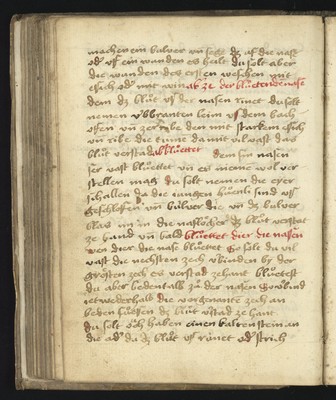 machen ein bulver vn sege dz vf die nase
od vf ein wunden es heilt du solt aber
die wunden des ersten weschen mit
essich od mit win ab ze der bluetender nase
dem dz bluot vs der nasen rinet du solt
nemen vbranten leim vs dem bach
offen vn zer ribe den mit starkem essich
vn ribe die tinne da mit vil vast das
bluot verstad ob bluettet dem sin nasen
ser vast bluettet vn es nieme wol ver
stellen mag du solt nemen die eyer
schallen da die iungen huenli sind vss
geschloffen vn bulver die vn dz bulver
blas im in die naslocher dz bluot verstat
ze hand vn bald bluettet dier die nasen
wen dier die nase bluettet so solt du vil
vast die nechsten zech vbinden by der
grosten zech es verstad zehant bluetest
du aber bedenthalb zu der nasen so vbind
ietwederhalb die vorgenante zech an
beden fuessen dz bluot vstad ze hant
du solt och haben einen kalcenstein an
die ad du dz bluot vs runet od strich